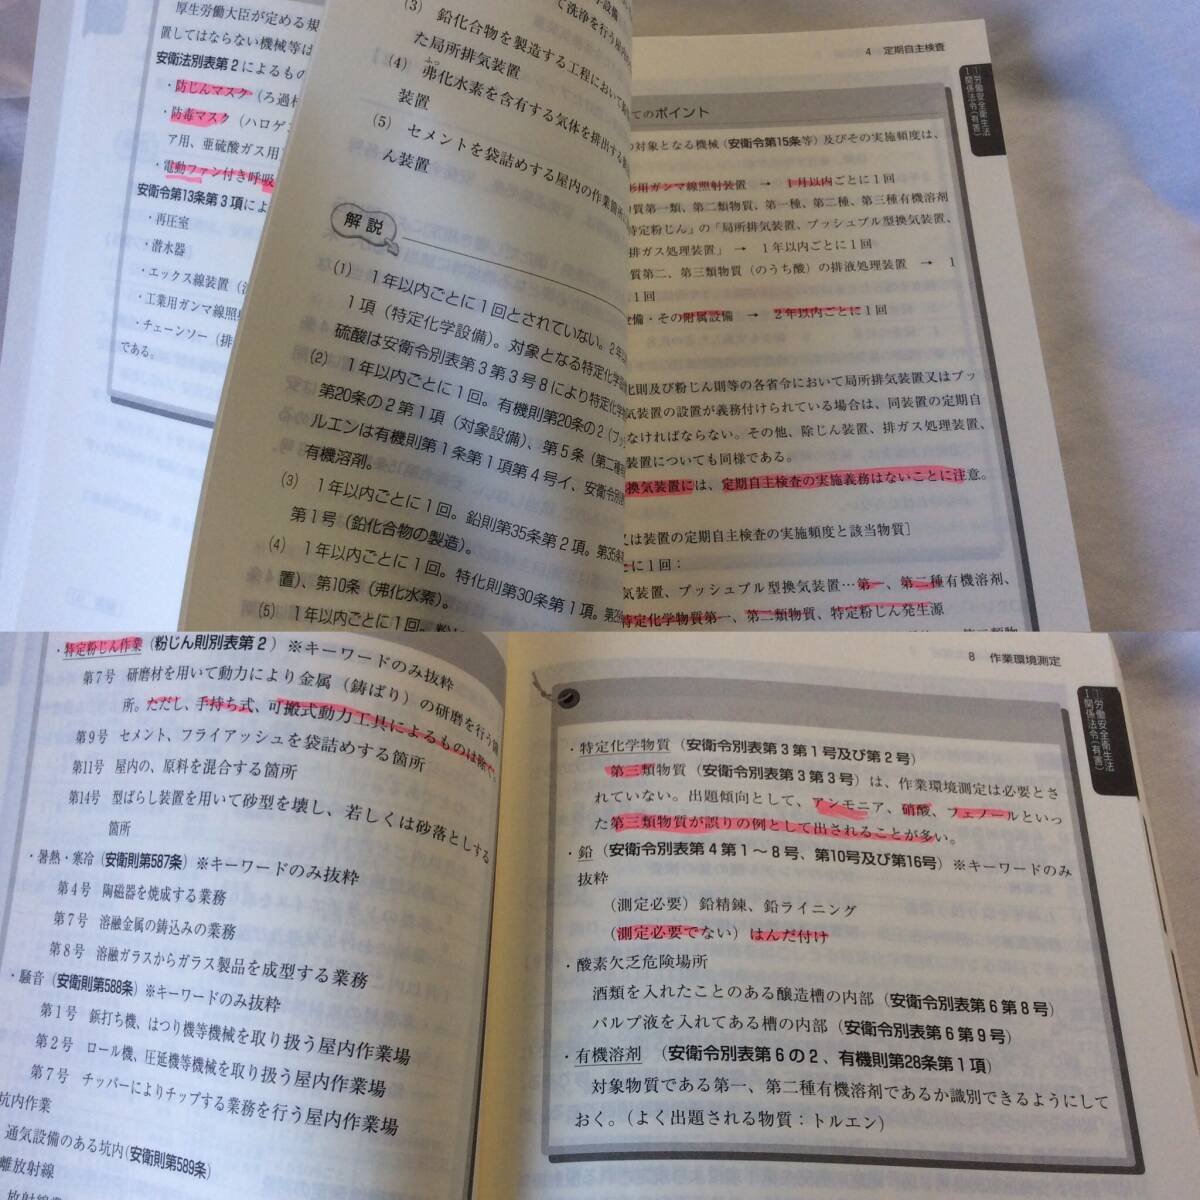 厚生労働大臣が定める規
置してはならない機械等は
安衛法別表第2によるもの
・防じんマスク（ろ過材
・防毒マスク（ハロゲン
ア用、亜硫酸ガス用
・電動ファン付き呼吸
安衛令第13条第3項によ
・再圧室
・潜水器
・エックス線装置（
・工業用ガンマ線照
・チェーンソー（排
である。
て洗浄を行う屋内
(3) 鉛化合物を製造する工程において
た局所排気装置
(4) 弗化水素を含有する気体を排出する
ふっ
装置
(5) セメントを袋詰めする屋内の作業箇所
ん装置
解説
(1) 1年以内ごとに1回とされていない。2年
1項（特定化学設備）。対象となる特定化学
硫酸は安衛令別表第3第3号8により特定化学
(2) 1年以内ごとに1回。有機則第20条の2（プッ
第20条の2第1項（対象設備）、第5条（第二種
ルエンは有機則第1条第1項第4号イ、安衛令別表
有機溶剤。
(3) 1年以内ごとに1回。鉛則第35条第2項。第35条
第1号（鉛化合物の製造）。
(4) 1年以内ごとに1回。特化則第30条第1項。第29
置）、第10条（弗化水素）。
(5) 1年以内ごとに1回。粉
4 定期自主検査
1 労働安全衛生法
関係法令（有害）
てのポイント
の対象となる機械（安衛令第15条等）及びその実施頻度は、
形用ガンマ線照射装置 → 1月以内ごとに1回
質第一類、第二類物質、第一種、第二種、第三種有機溶剤
特定粉じん」の「局所排気装置、プッシュプル型換気装置、
排ガス処理装置」 → 1年以内ごとに1回
質第二、第三類物質（のうち酸）の排液処理装置 → 1
1回
設備・その附属設備 → 2年以内ごとに1回
化則及び粉じん則等の各省令において局所排気装置又はプッ
気装置の設置が義務付けられている場合は、同装置の定期自
なければならない。その他、除じん装置、排ガス処理装置、
装置についても同様である。
換気装置には、定期自主検査の実施義務はないことに注意。
又は装置の定期自主検査の実施頻度と該当物質］
とに1回：
気装置、プッシュプル型換気装置…第一、第二種有機溶剤、
特定化学物質第一、第二類物質、特定粉じん発生源
・特定粉じん作業（粉じん則別表第2）※キーワードのみ抜粋
第7号 研磨材を用いて動力により金属（鋳ばり）の研磨を行う箇
所。ただし、手持ち式、可搬式動力工具によるものは除く。
第9号 セメント、フライアッシュを袋詰めする箇所
第11号 屋内の、原料を混合する箇所
第14号 型ばらし装置を用いて砂型を壊し、若しくは砂落としする
箇所
・暑熱・寒冷（安衛則第587条）※キーワードのみ抜粋
第4号 陶磁器を焼成する業務
第7号 溶融金属の鋳込みの業務
第8号 溶融ガラスからガラス製品を成型する業務
・騒音（安衛則第588条）※キーワードのみ抜粋
第1号 鋲打ち機、はつり機等機械を取り扱う屋内作業場
第2号 ロール機、圧延機等機械を取り扱う屋内作業場
第7号 チッパーによりチップする業務を行う屋内作業場
坑内作業
通気設備のある坑内（安衛則第589条）
離放射線
8 作業環境測定
1 労働安全衛生法
関係法令（有害）
・特定化学物質（安衛令別表第3第1号及び第2号）
第三類物質（安衛令別表第3第3号）は、作業環境測定は必要とさ
れていない。出題傾向として、アンモニア、硝酸、フェノールといっ
た第三類物質が誤りの例として出されることが多い。
・鉛（安衛令別表第4第1～8号、第10号及び第16号）※キーワードのみ
抜粋
（測定必要）鉛精錬、鉛ライニング
（測定必要でない）はんだ付け
・酸素欠乏危険場所
酒類を入れたことのある醸造槽の内部（安衛令別表第6第8号）
パルプ液を入れてある槽の内部（安衛令別表第6第9号）
・有機溶剤 （安衛令別表第6の2、有機則第28条第1項）
対象物質である第一、第二種有機溶剤であるか識別できるようにして
おく。（よく出題される物質：トルエン）